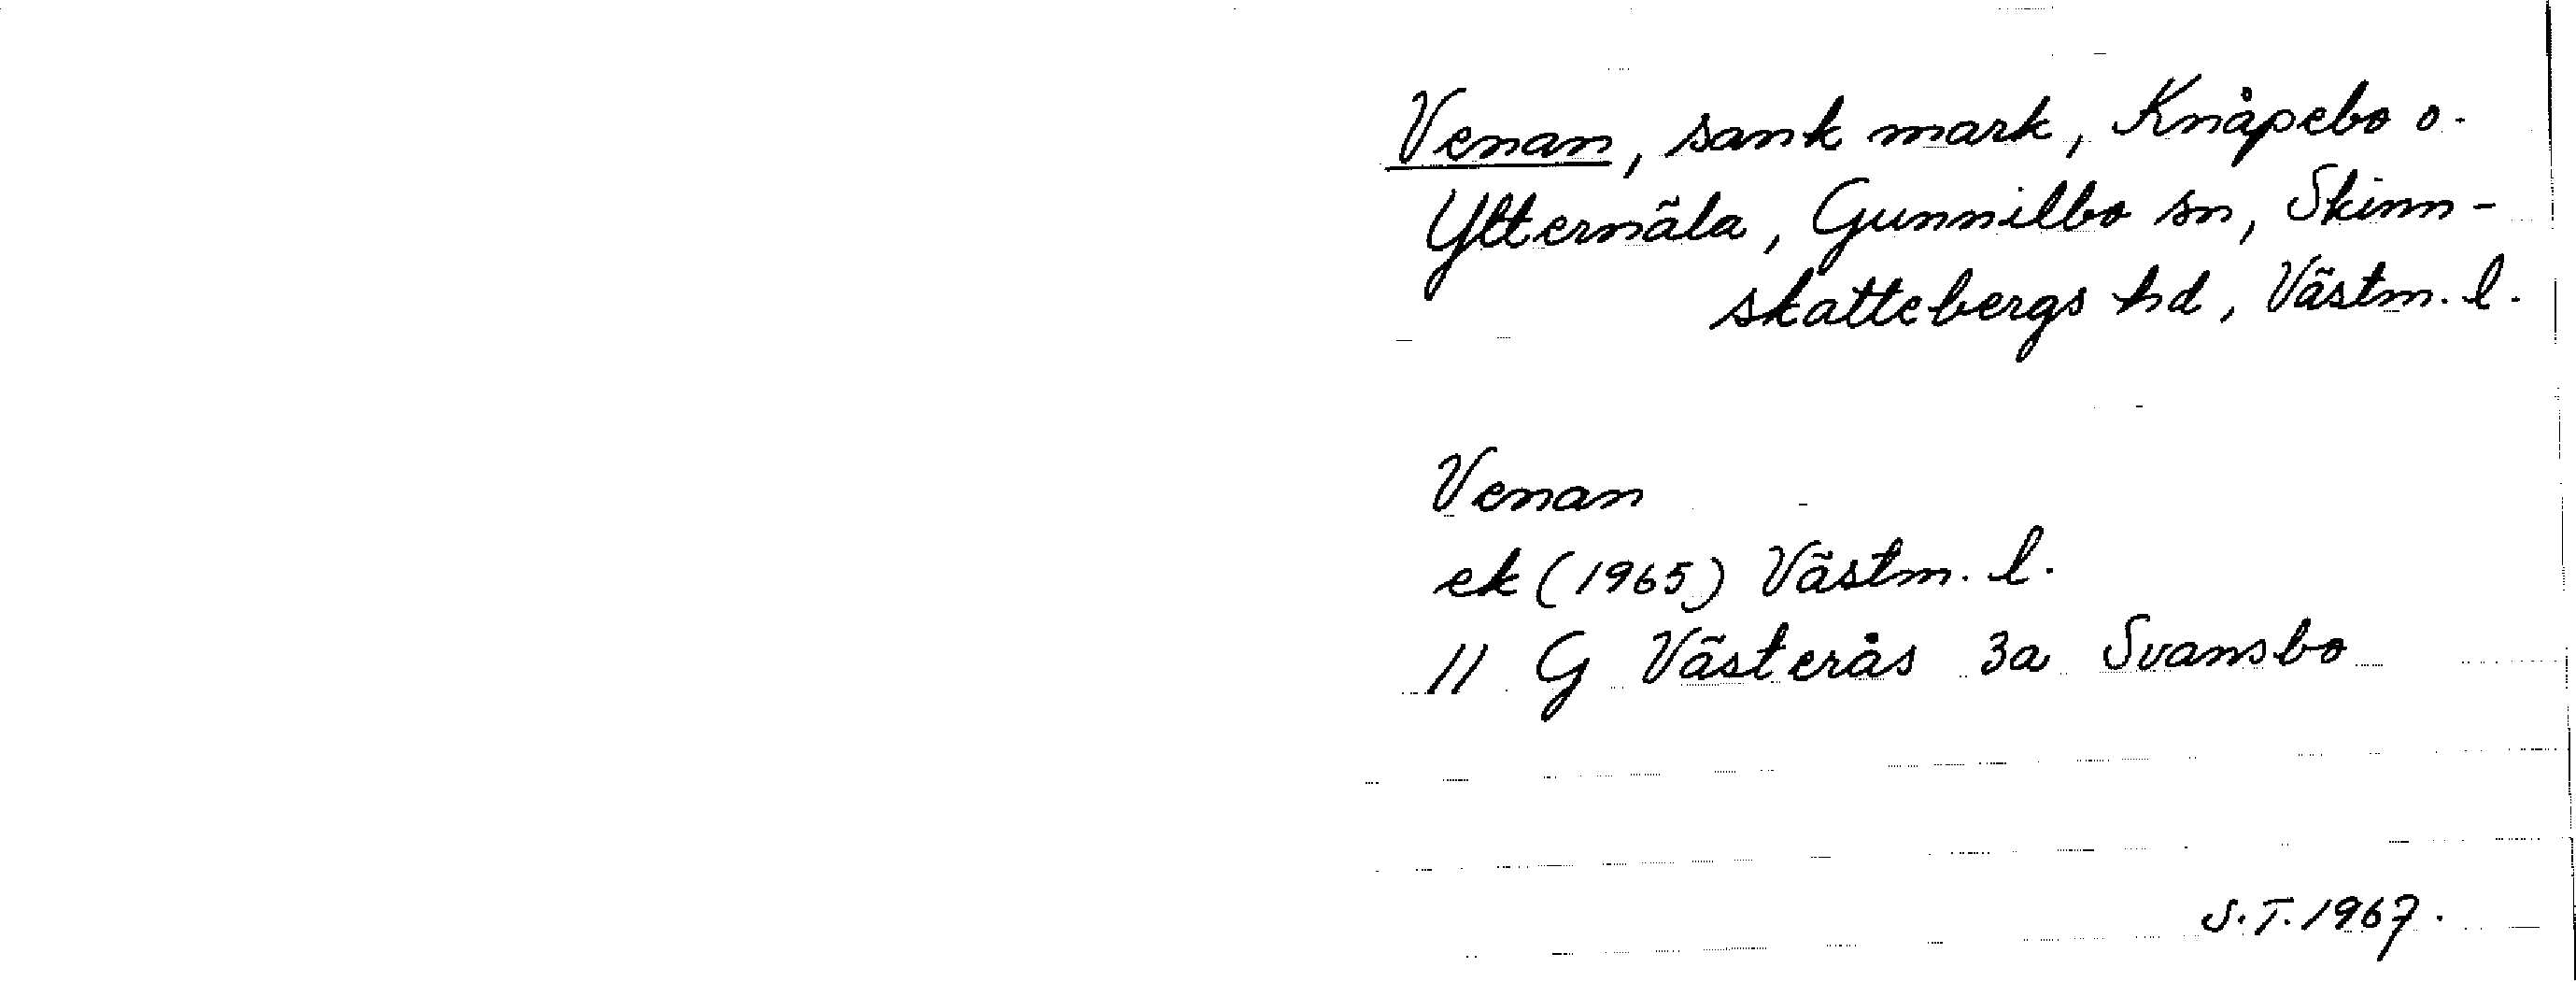 Venan, sank mark, Knåpebo o.
Ytternäla, Gunnilbo sn, Skinn-
skattebergs hd, Västm. l.
Venan
ek (1965) Västm. l.
11 G Västerås 3a Svansbo
S.T. 1967.